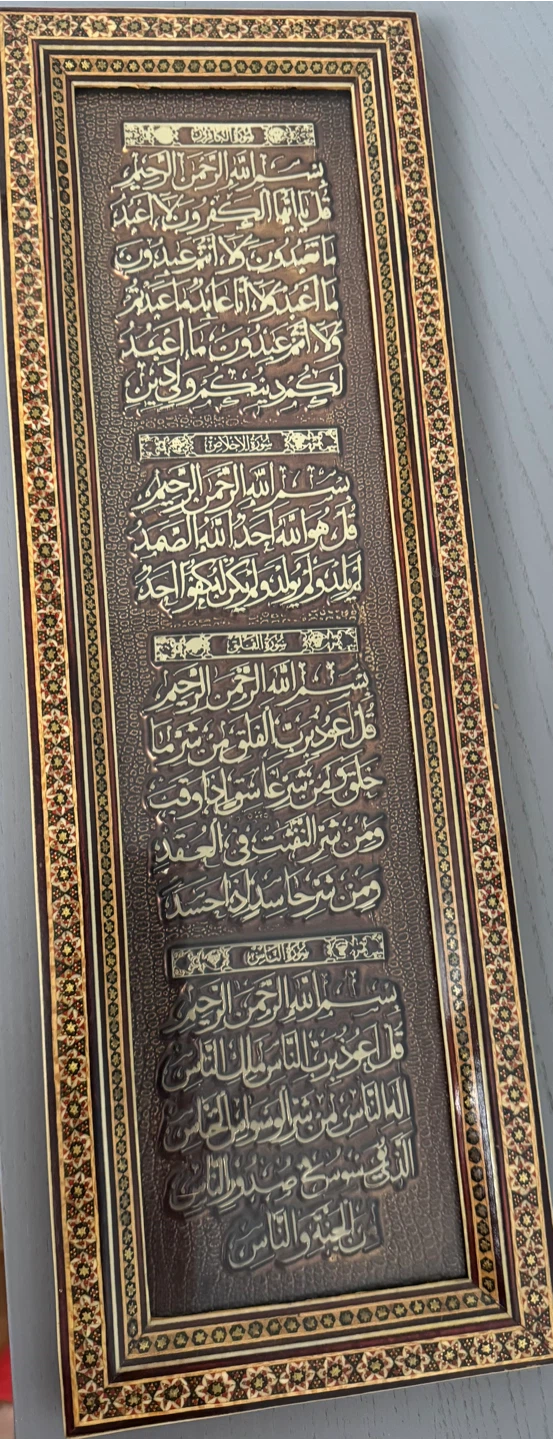 سورة الكافرون
بسم الله الرحمن الرحيم
قل يا ايها الكفرون لا اعبد
ما تعبدون ولا انتم عبدون
ما اعبد ولا انا عابد ما عبدتم
ولا انتم عبدون ما اعبد
لكم دينكم ولي دين
سورة الاخلاص
بسم الله الرحمن الرحيم
قل هو الله احد الله الصمد
لم يلد ولم يولد ولم يكن له كفوا احد
سورة الفلق
بسم الله الرحمن الرحيم
قل اعوذ برب الفلق من شر ما
خلق ومن شر غاسق اذا وقب
ومن شر النفثت في العقد
ومن شر حاسد اذا حسد
سورة الناس
بسم الله الرحمن الرحيم
قل اعوذ برب الناس ملك الناس
اله الناس من شر الوسواس الخناس
الذي يوسوس في صدور الناس
من الجنة والناس